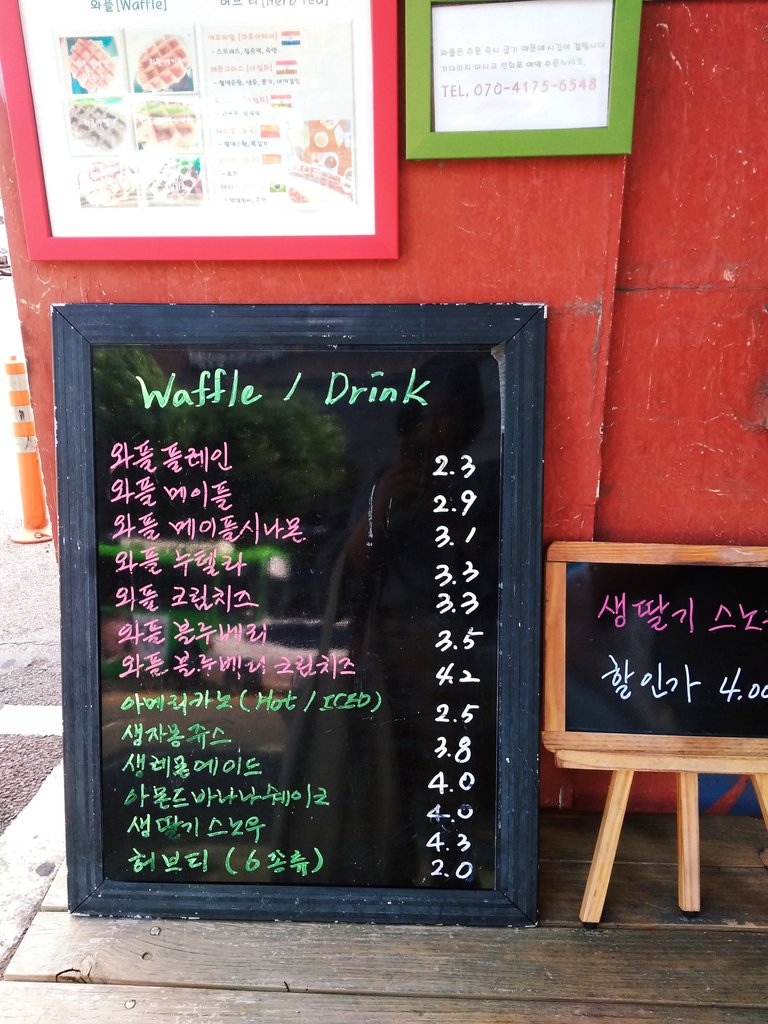 와플[Waffle]
허브 티[Herb Tea]
와플은 주문 즉시 굽기 때문에 시간이 걸립니다.
TEL. 070-4175-6548
Waffle / Drink
와플 플레인 2.3
와플 메이플 2.9
와플 메이플시나몬 3.1
와플 누텔라 3.3
와플 크림치즈 3.3
와플 블루베리 3.5
와플 블루베리 크림치즈 4.2
아메리카노 (Hot / ICED) 2.5
생자몽쥬스 3.8
생레몬에이드 4.0
아몬드바나나쉐이크 4.0
생딸기스노우 4.3
허브티 (6종류) 2.0
생딸기 스노
할인가 4.00